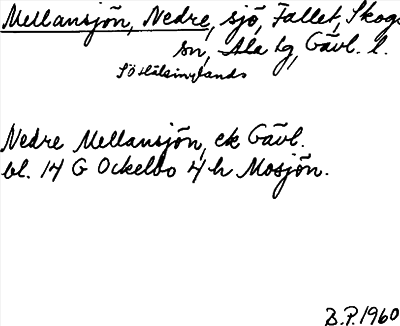 Mellansjön, Nedre, sjö, Fallet, Skogs
sn, Ala tg, Gävl. l.
Sö Hälsinglands
Nedre Mellansjön, ek Gävl.
bl. 14 G Ockelbo 4 h Mosjön.
B.P. 1960